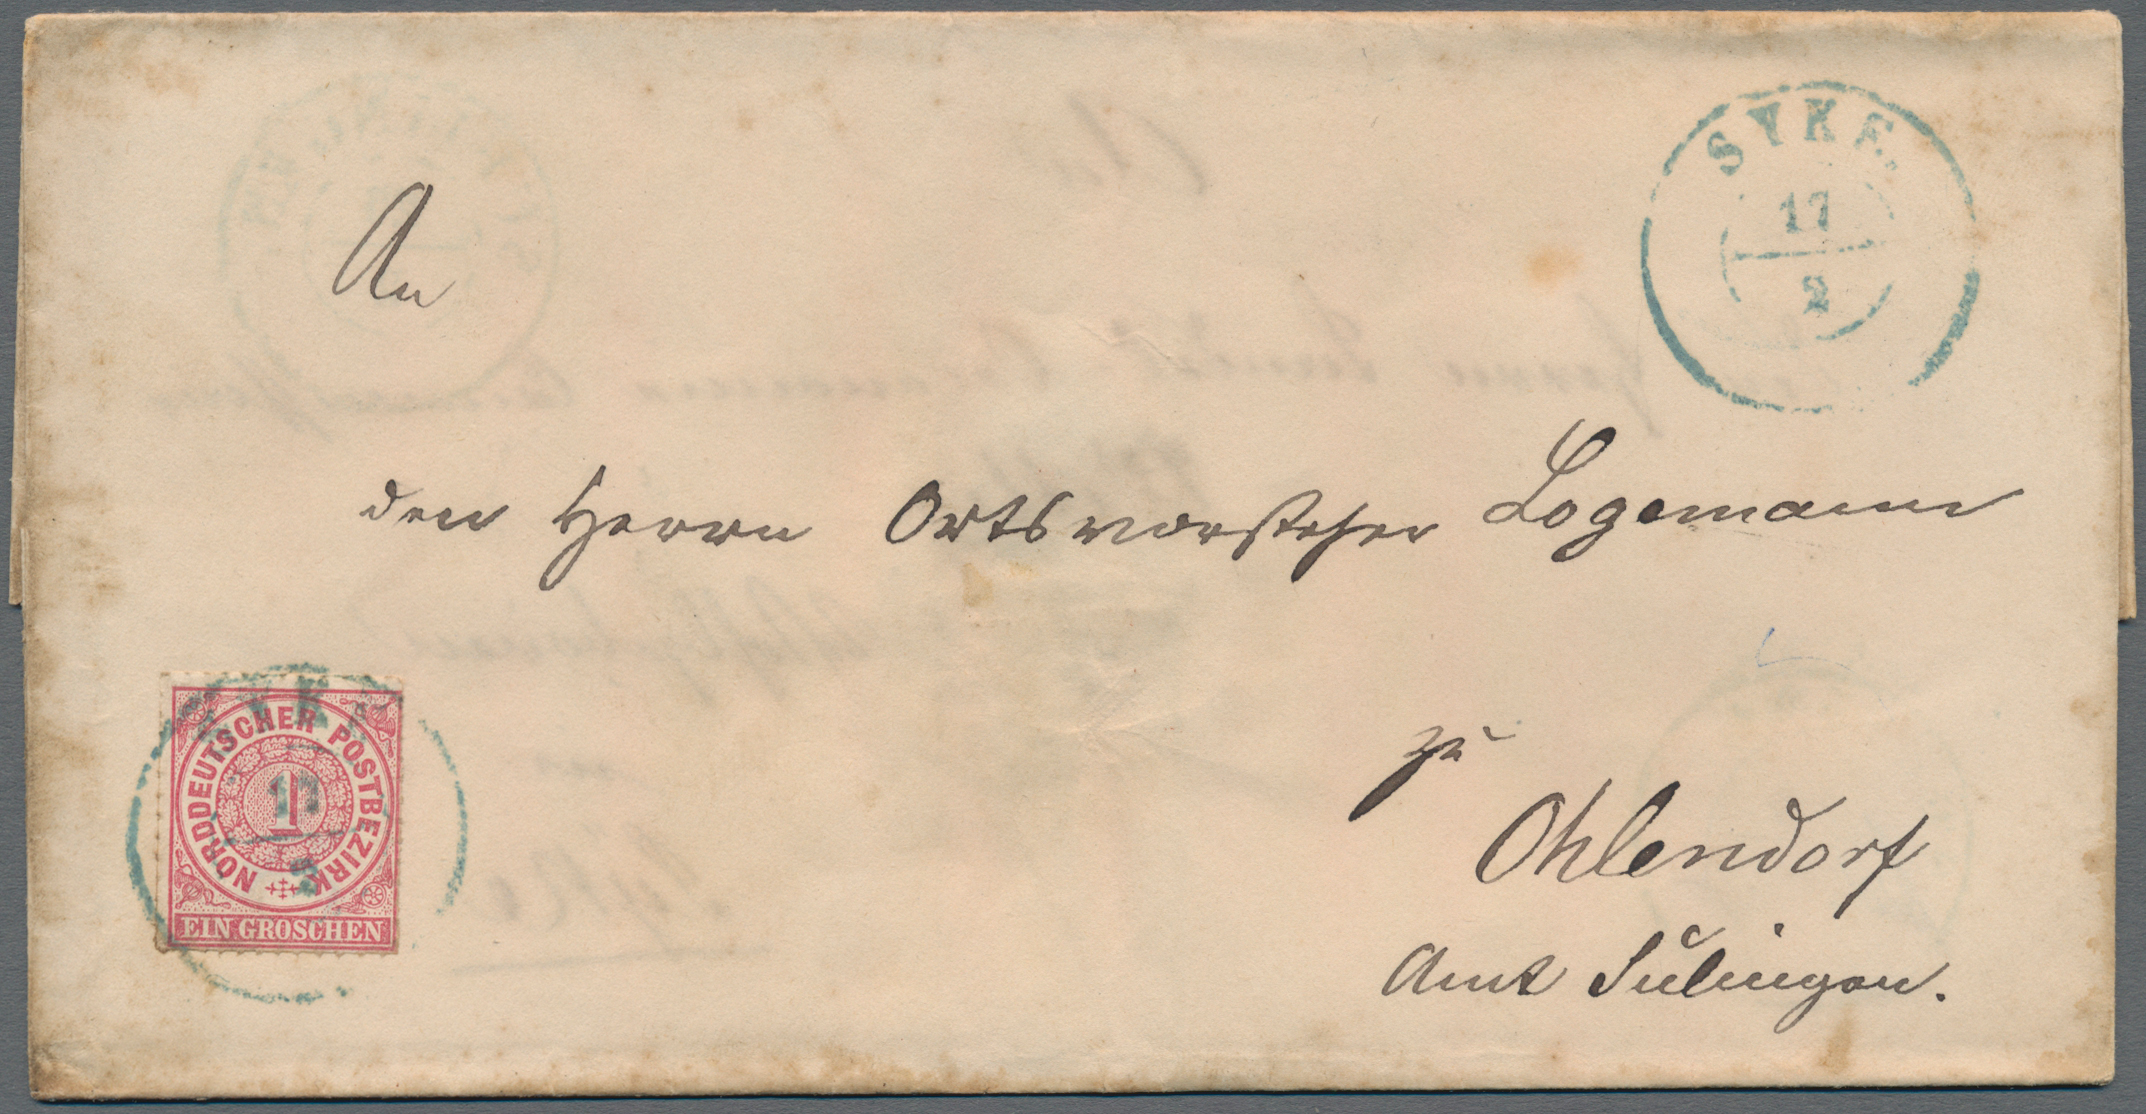 SYKE.
17
2
An
den Herrn Ortsvorsteher Logemann
zu
Ohlendorf
Amt Sulingen.
NORDDEUTSCHER POSTBEZIRK
1
EIN GROSCHEN
SYKE
17
2